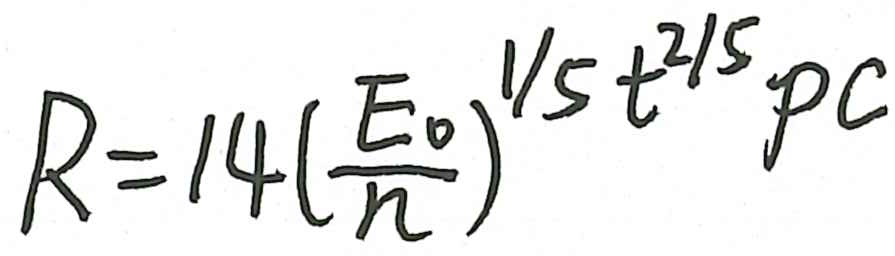 R = 14 (E₀/n)^{1/5} t^{2/5} pc